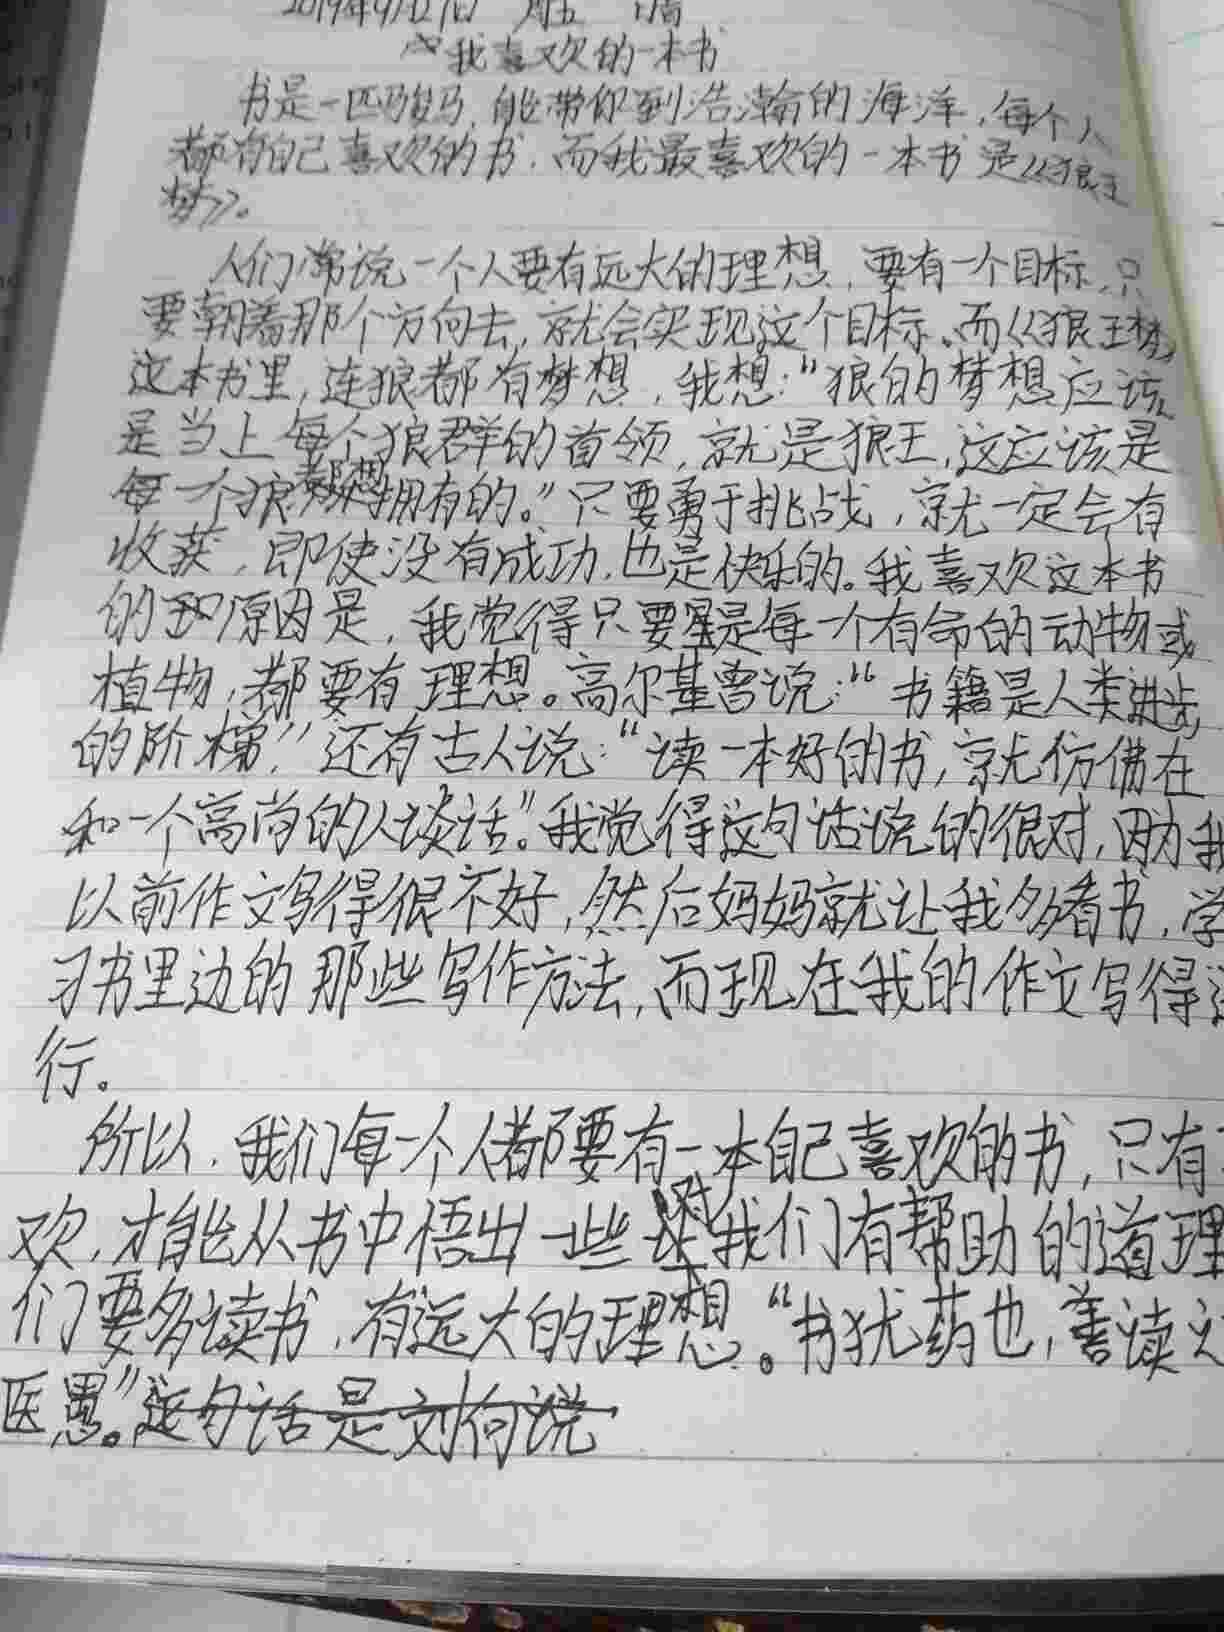 我喜欢的一本书
书是一匹骏马,能带你到浩瀚的海洋,每个人
都有自己喜欢的书,而我最喜欢的一本书是《狼王
梦》。
人们常说一个人要有远大的理想,要有一个目标,只
要朝着那个方向去,就会实现这个目标。而《狼王梦》
这本书里,连狼都有梦想,我想:“狼的梦想应该
是当上每个狼群的首领,就是狼王,这应该是
每一个狼都想拥有的。”只要勇于挑战,就一定会有
收获,即使没有成功,也是快乐的。我喜欢这本书
的原因是,我觉得只要是每一个有命的动物或
植物,都要有理想。高尔基曾说:“书籍是人类进步
的阶梯,”还有古人说:“读一本好的书,就仿佛在
和一个高尚的人谈话”。我觉得这句话说的很对,因为我
以前作文写得很不好,然后妈妈就让我多看书,学
习书里边的那些写作方法,而现在我的作文写得
行。
所以,我们每一个人都要有一本自己喜欢的书,只有
欢,才能从书中悟出一些对我们有帮助的道理
们要多读书,有远大的理想。“书犹药也,善读之
医愚”。这句话是刘向说